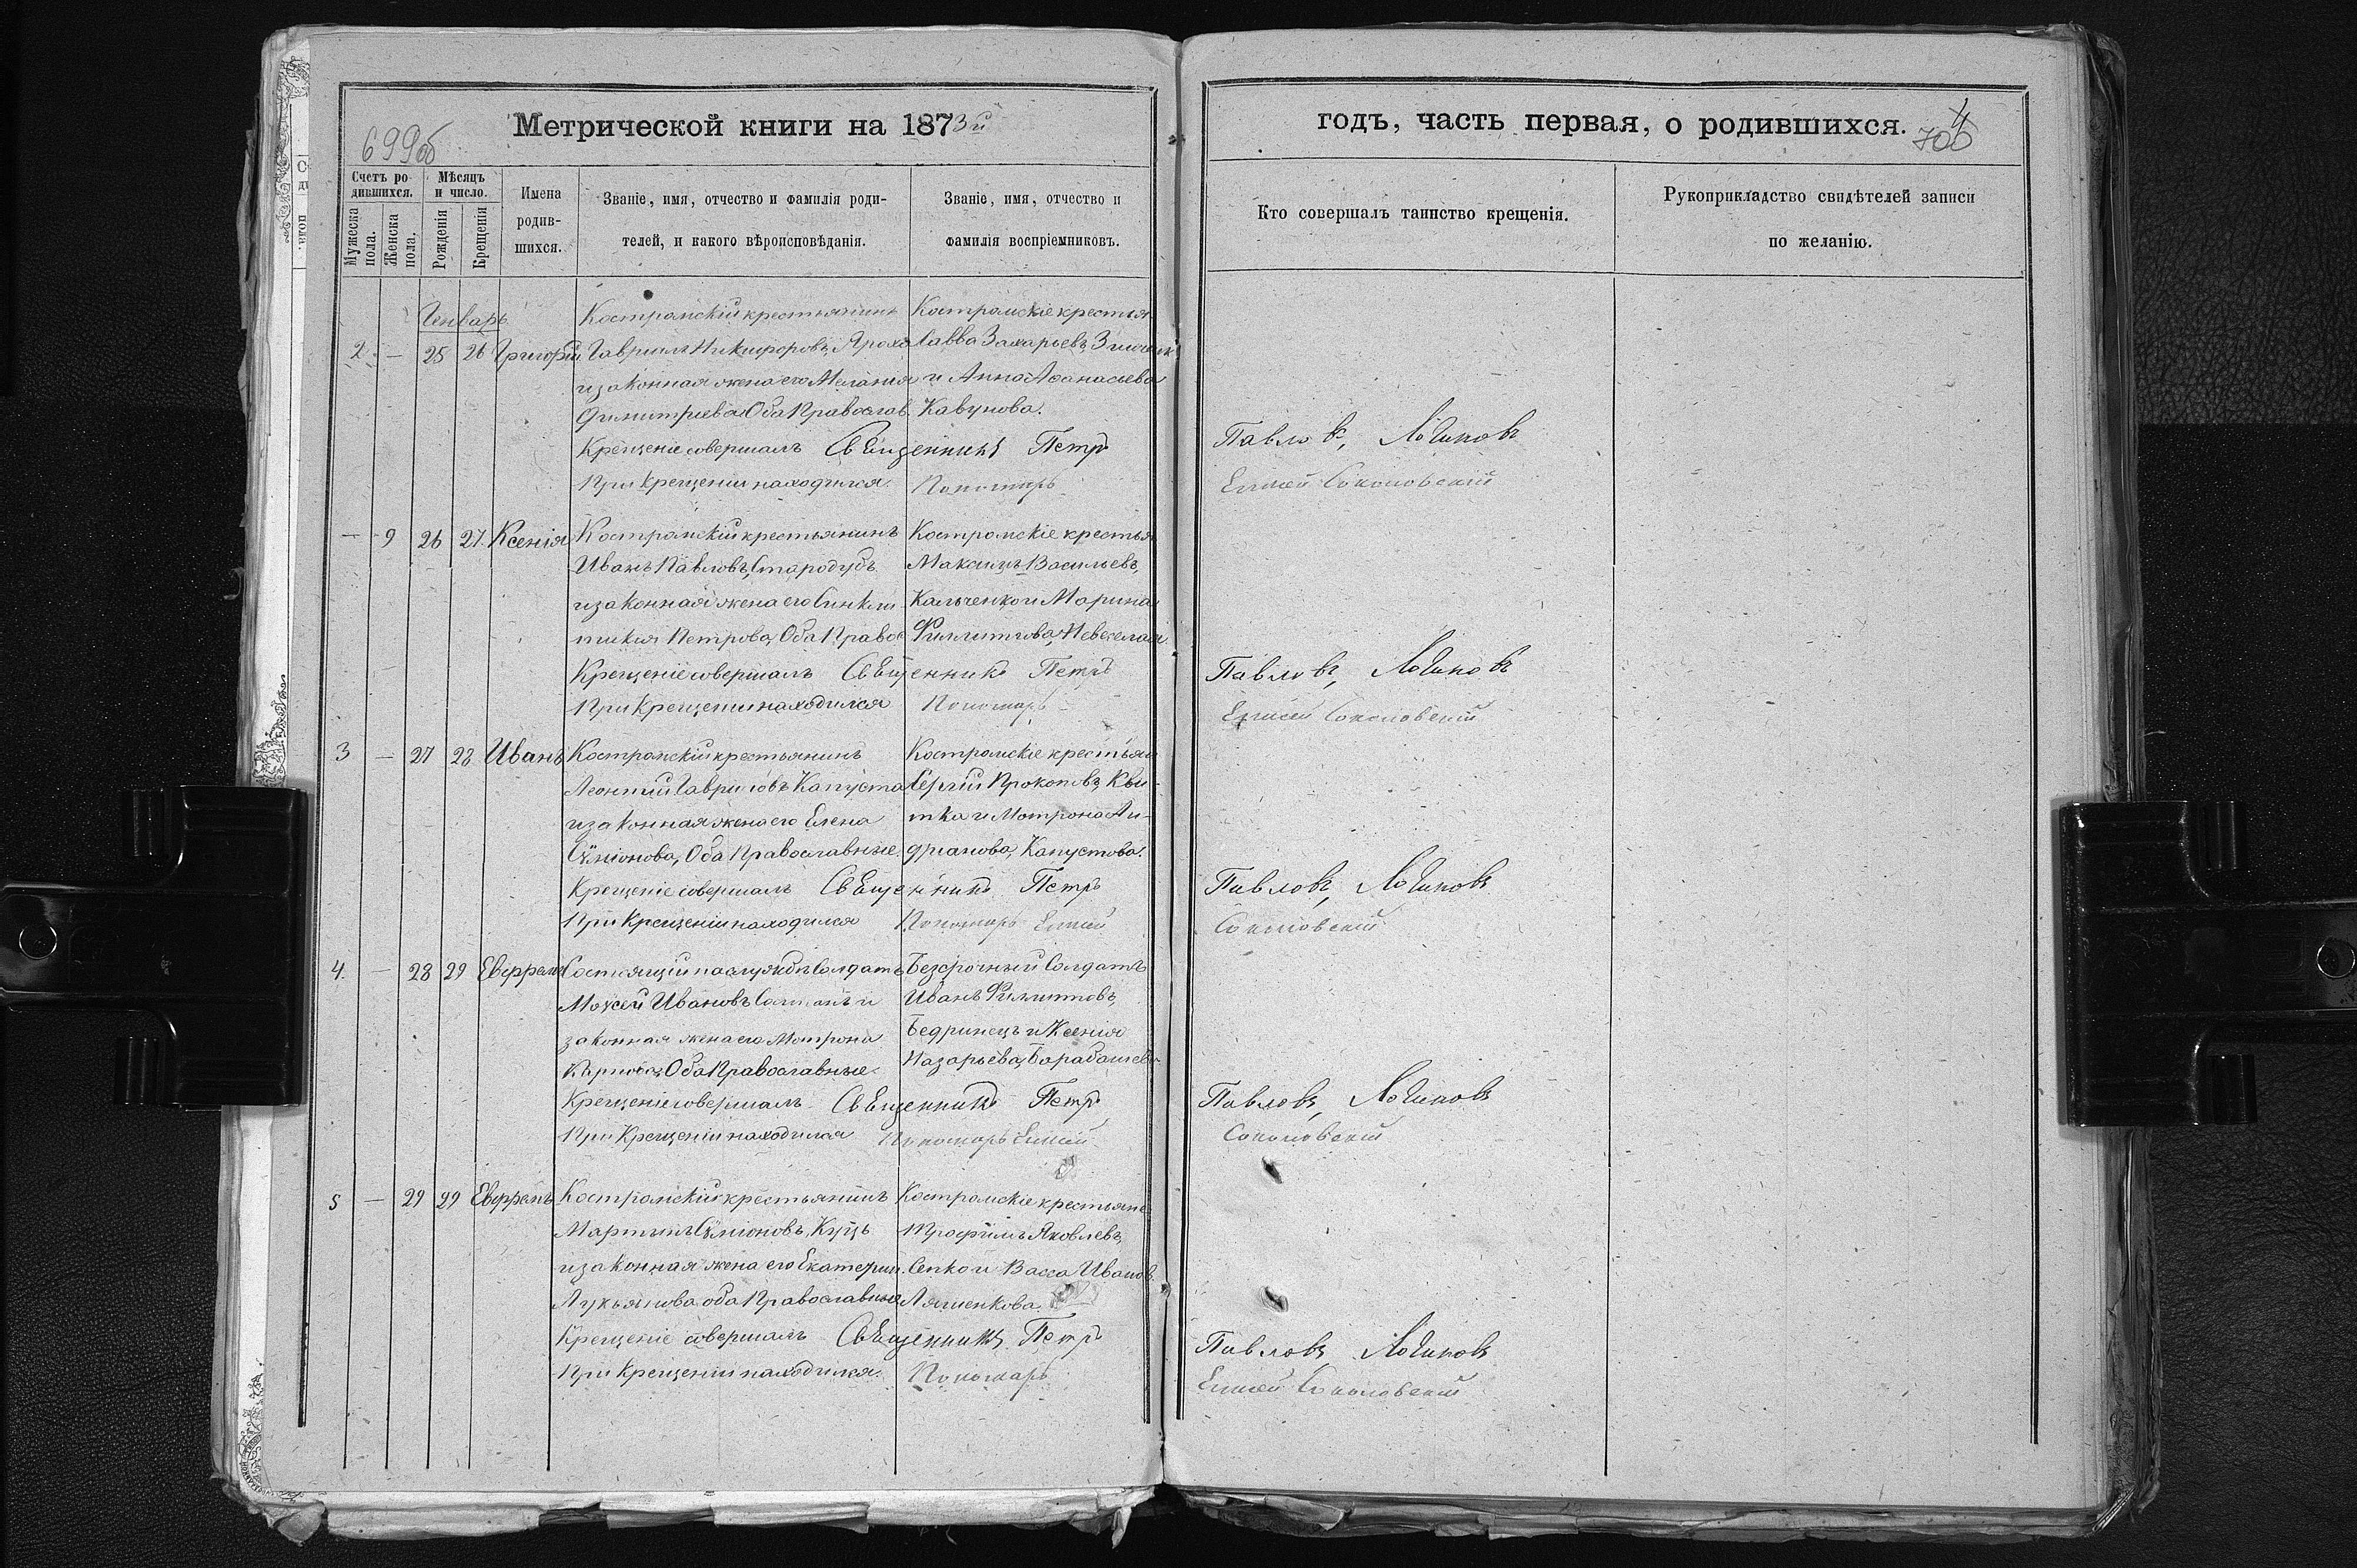 Метрической книги на 1873й
699об
Счетъ ро
дившихся.
Мужеска
пола.
Женска
пола.
Мѣсяцъ
и число.
Рожденія
Крещенія
Имена
родив-
шихся.
Званіе, имя, отчество и фамилія роди-
телей, и какого вѣроисповѣданія.
Званіе, имя, отчество и
фамилія воспріемниковъ.
годъ, часть первая, о родившихся.
4
700
Кто совершалъ таинство крещенія.
Рукоприкладство свидѣтелей записи
по желанію.
Генварь
Костромскій крестьянинъ Костромскіе крестья
2. — 25 26 Григорій Гавріилъ Никифоровъ, Яроха Савва Захарьевъ,
и законная жена его Меланія и Анна Аѳанасьева
Димитріева Оба Православ. Кавунова.
Крещеніе совершалъ Священникъ Петръ Павловъ, Логиновъ
При Крещеніи находился Пономарь Елисей Соколовскій
— 9 26 27. Ксенія Костромскій крестьянинъ Костромскіе крестья
Иванъ Павловъ, Стародубъ Максимъ Васильевъ,
и законная жена его Синкли Кальченко и Марина
тикія Петрова, Оба Право Филиппова,
Крещеніе совершалъ Священникъ Петръ Павловъ, Логиновъ
При Крещеніи находился Пономарь Елисей Соколовскій
3 — 27 28 Иванъ Костромскій крестьянинъ Костромскіе крестьян
Леонтій Гавриловъ Капуста Сергій Прокоповъ, Кви-
и законная жена его Елена тка и Мотрона Ан-
Сѵміонова, Оба Православные. дріанова, Капустова.
Крещеніе совершалъ Священникъ Петръ Павловъ, Логиновъ
При Крещеніи находился Пономарь Елисей Соколовскій
4. — 28 29 Ефремъ Состоящій на службѣ Солдатъ Безсрочный Солдатъ
Моѵсей Ивановъ и Иванъ Филипповъ,
законная жена его Мотрона Бедринецъ и Ксенія
Карпова, Оба Православные. Назарьева, Барабашева
Крещеніе совершалъ Священникъ Петръ Павловъ, Логиновъ
При Крещеніи находился Пономарь Елисей Соколовскій
5 — 29 29 Ефремъ Костромскій крестьянинъ Костромскіе крестьяне
Мартинъ Сѵміоновъ, Куцъ Трофимъ Яковлевъ,
и законная жена его Екатерин. Сепко и Васса Иванов
Лукьянова оба Православные Ляшенкова.
Крещеніе совершалъ Священникъ Петръ Павловъ, Логиновъ
При Крещеніи находился. Пономарь Елисей Соколовскій